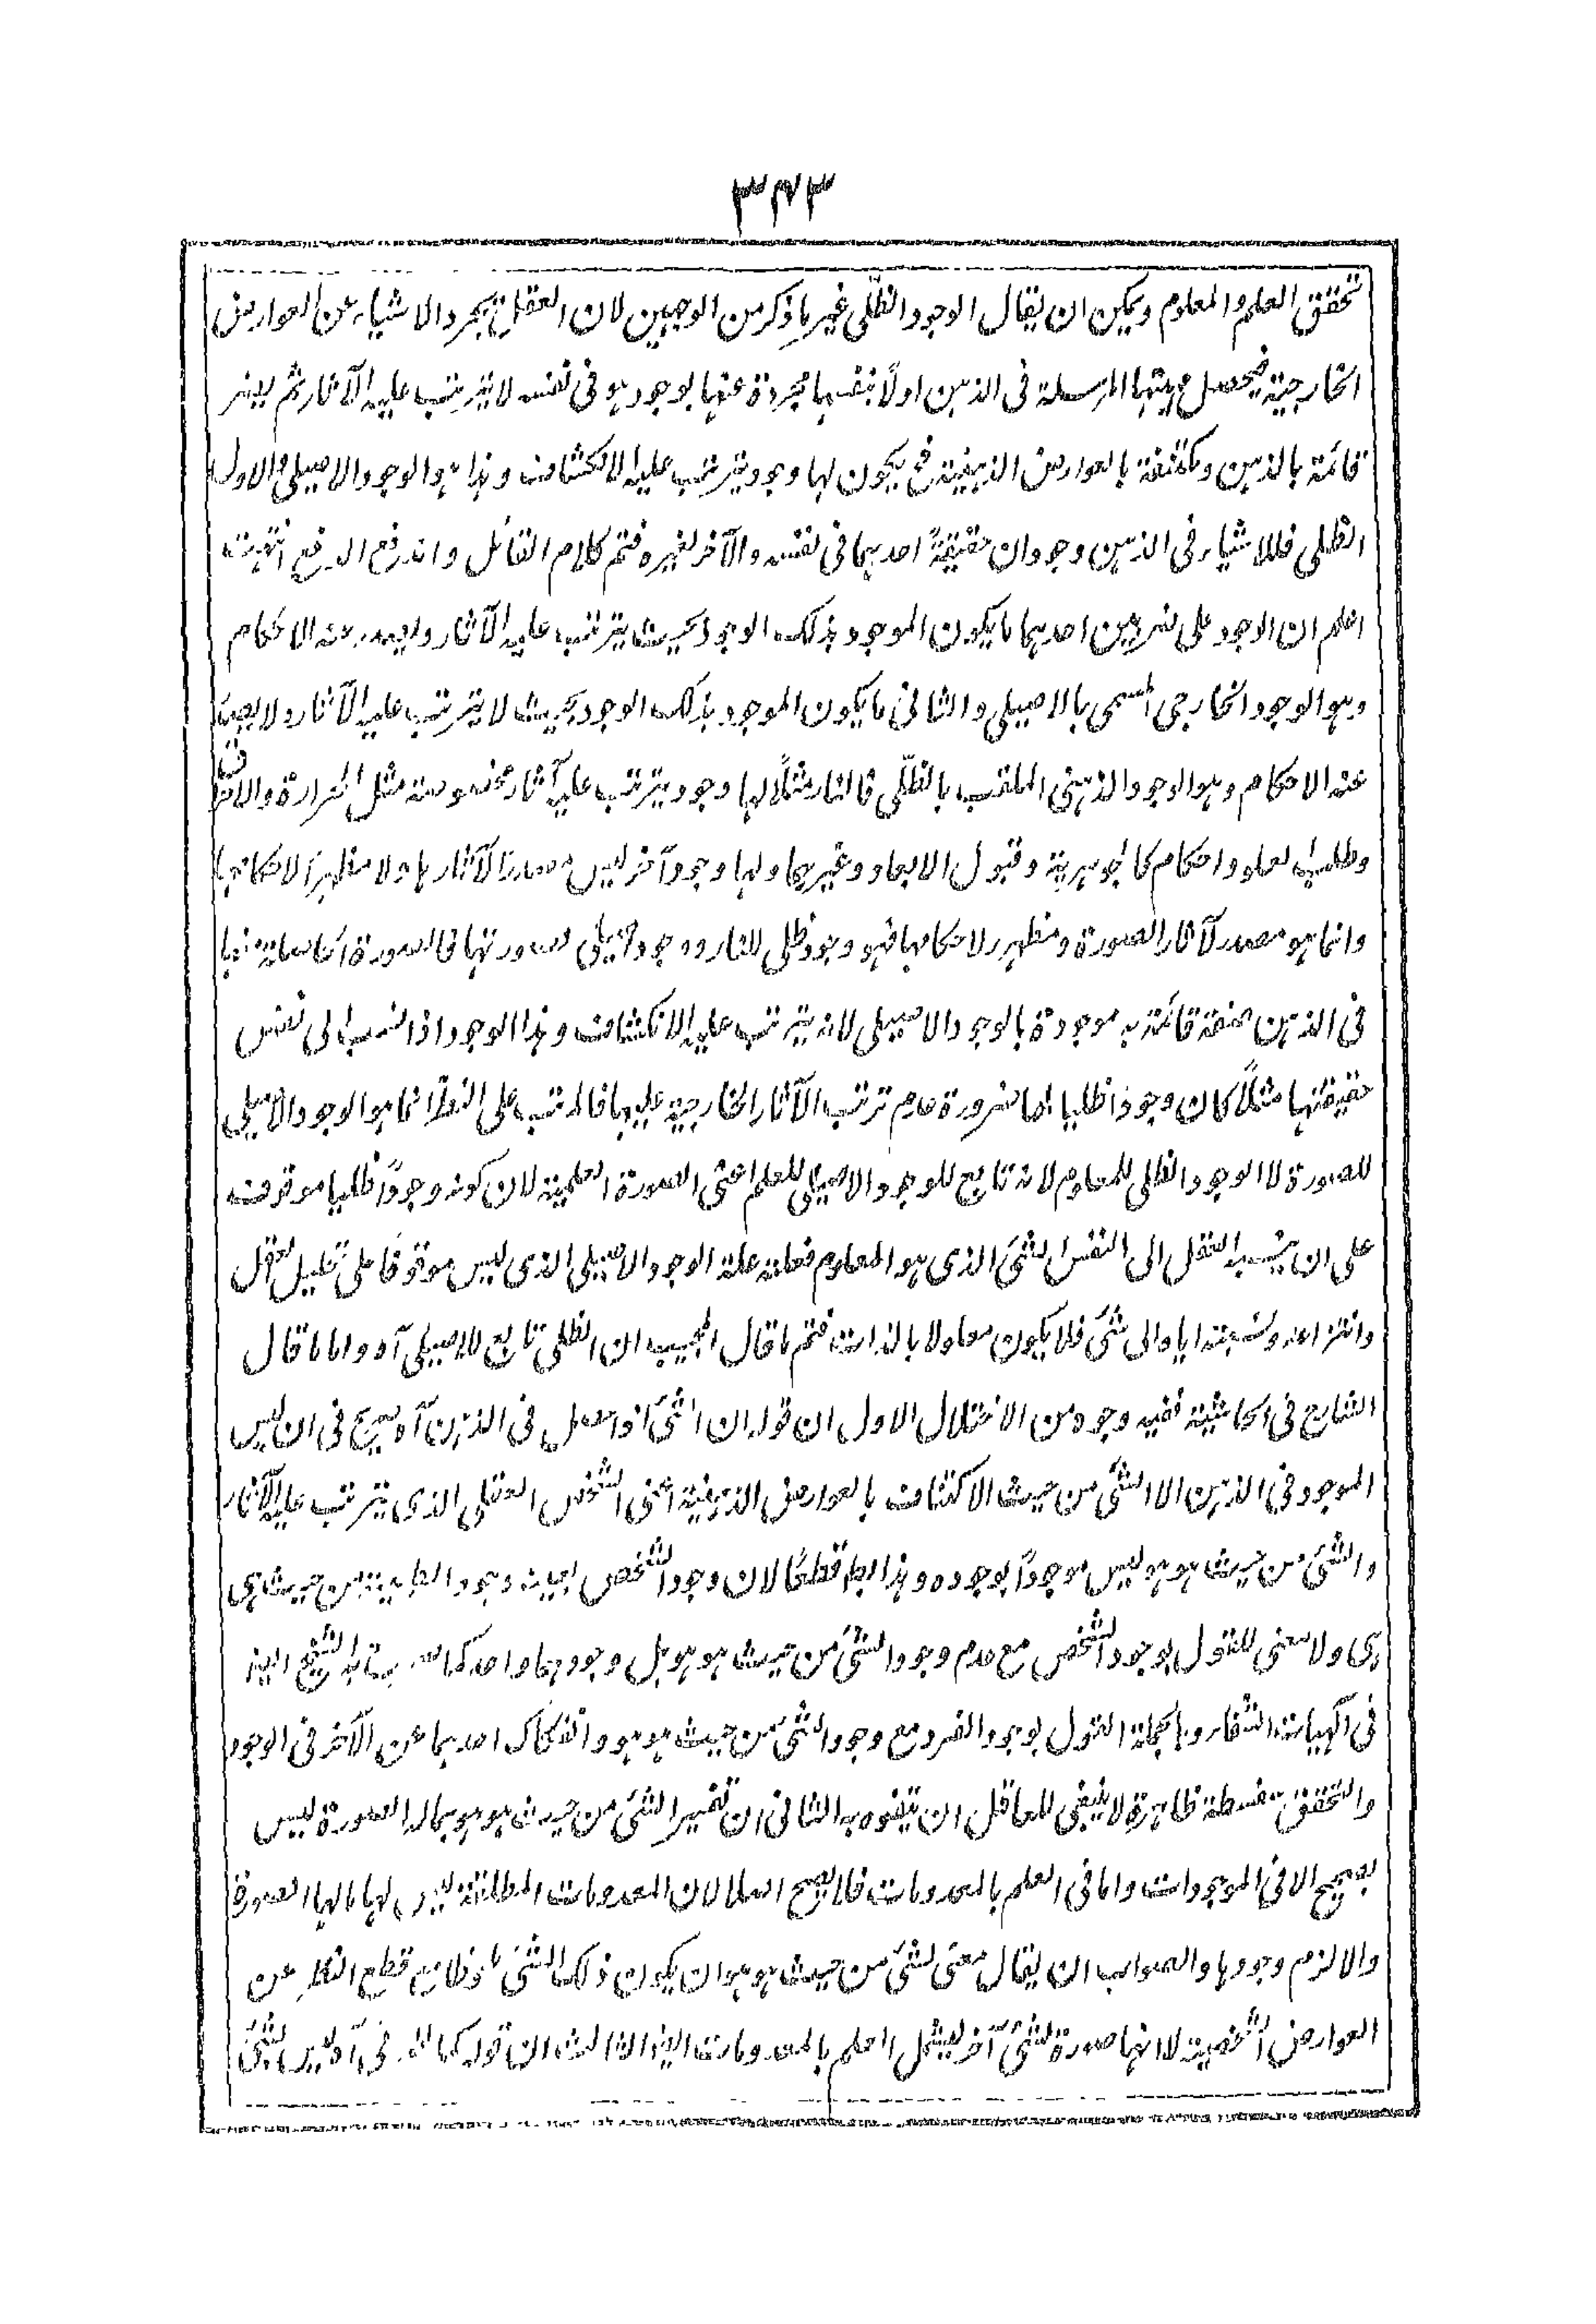 ٣٧٣
تحقق العلم والمعلوم ويمكن ان يقال الوجود الظلّى غير ما ذكر من الوجهين لان العقل يجرد الاشياء عن العوارض
الخارجية فيحصل مهيتها المرسلة فى الذهن اولاً بنفسها مجردة عنها بوجود هو فى نفسه لا يترتب عليه الآثار ثم يصير
قائمة بالذهن ومكتنفة بالعوارض الذهنية فح يكون لها وجود يترتب عليه الانكشاف وهذا هو الوجود الاصيلى والاول
الظلى فللاشياء فى الذهن وجودان حقيقةً احدهما فى نفسه والآخر لغيره فتم كلام القائل واندفع الدفع انتهت
اعلم ان الوجود على ضربين احدهما ما يكون الموجود بذلك الوجود بحيث يترتب عليه الآثار ويصدر عنه الاحكام
وهو الوجود الخارجى المسمى بالاصيلى والثانى ما يكون الموجود بذلك الوجود بحيث لا يترتب عليه الآثار ولا يصدر
عنه الاحكام وهو الوجود الذهنى الملقب بالظلّى فالنار مثلاً لها وجود يترتب عليه آثار مخصوصة مثل الحرارة والاحراق
وطلب العلو واحكام كالجوهرية وقبول الابعاد وغيرهما ولها وجود آخر ليس مصدرا لآثارها ولا مظهرا لاحكامها
وانما هو مصدر لآثار الصورة ومظهر لاحكامها فهو وجود ظلى للنار ووجود اصيلى لصورتها فالصورة الحاصلة منها
فى الذهن صفة قائمة به موجودة بالوجود الاصيلى لانه يترتب عليه الانكشاف وهذا الوجود اذا نسب الى نفس
حقيقتها مثلاً كان وجودا ظليا لها ضرورة عدم ترتب الآثار الخارجية عليها فالمرتب على العلة انما هو الوجود الاصيلى
للصورة لا الوجود الظلى للمعلوم لانه تابع للوجود الاصيلى للعلم اعنى الصورة العلمية لان كونه وجودًا ظليا موقوف
على ان ينسبه العقل الى النفس الشئ الذى هو المعلوم فعلته علة الوجود الاصيلى الذى ليس موقوفا على تحليل العقل
وانتزاعه ونسبته اياه الى شئ فلا يكون معلولا بالذات فتم ما قال المجيب ان الظلى تابع للاصيلى آه واما ما قال
الشارح فى الحاشية ففيه وجوه من الاختلال الاول ان قوله ان الشئ اذا حصل فى الذهن آه صريح فى ان ليس
الموجود فى الذهن الا الشئ من حيث الاكتناف بالعوارض الذهنية اعنى الشخص العقلى الذى يترتب عليه الآثار
والشئ من حيث هو هو ليس موجودًا بوجوده وهذا باطل قطعًا لان وجود الشخص بعينه وجود الطبيعة من حيث هى
هى ولا معنى للقول بوجود الشخص مع عدم وجود الشئ من حيث هو هو بل وجودهما واحد كما الشيخ ايضا
فى آلهيات الشفاء وبالجملة القول بوجود الفرد مع وجود الشئ من حيث هو هو وانفكاك احدهما عن الآخر فى الوجود
والتحقق سفسطة ظاهرة لا ينبغى للعاقل ان يتفوه به الثانى ان تفسير الشئ من حيث هو هو بما له الصورة ليس
بصحيح الا فى الموجودات واما فى العلم بالمعدومات فلا يصح اصلا لان المعدومات المطلقة ليس لها ما لها الصورة
والا لزم وجودها والصواب ان يقال معنى الشئ من حيث هو هو ان يكون ذلك الشئ ملحوظا مع قطع النظر عن
العوارض الشخصية لا انها صورة لشئ آخر ليشمل العلم بالمعدومات ايضا الثالث ان قوله كما انه فى آه ليس بشئ